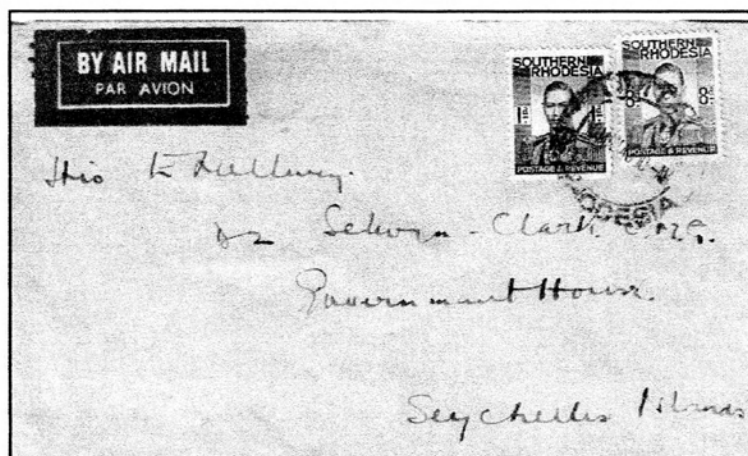 BY AIR MAIL
PAR AVION
SOUTHERN
RHODESIA
1
1
POSTAGE & REVENUE
SOUTHERN
RHODESIA
8D
8D
POSTAGE & REVENUE
RHODESIA
His Excellency.
Dr Selwyn - Clark. C.M.G.
Government House.
Seychelles Islands